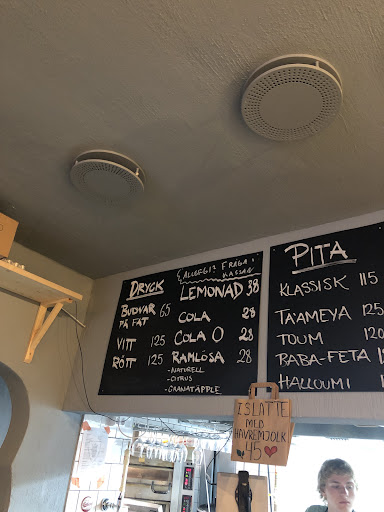 DRYCK
{ALLERGI? FRÅGA I
KASSAN
BUDVAR 65
PÅ FAT
VITT 125
RÖTT 125
LEMONAD 38
COLA 28
COLA O 28
RAMLÖSA 28
-NATURELL
-CITRUS
-GRANATÄPPLE
PITA
KLASSISK 115
TA'AMEYA 125
TOUM
BABA-FETA
HALLOUMI
ISLATTE
MED
HAVREMJÖLK
45